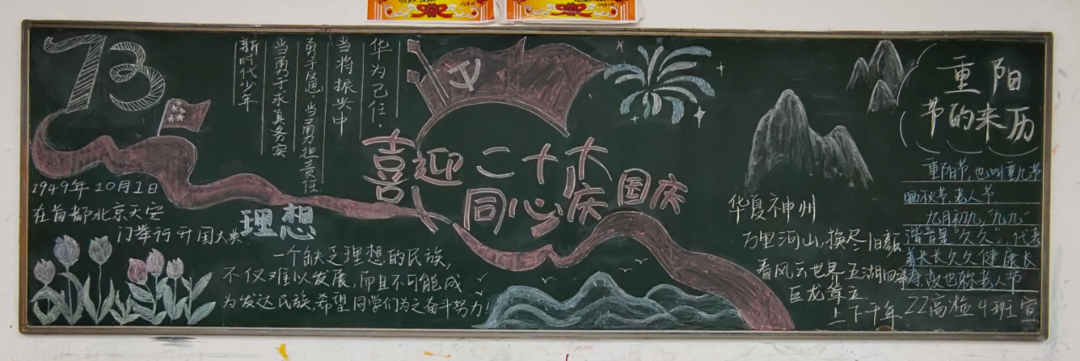 73
新时代少年
当勇于求真务实
勇于反思 当勇力担责任
当将振兴中
华为己任,
1949年10月1日
在首都北京天安
门举行开国大典
理想
一个缺乏理想的民族,
不仅难以发展,而且不可能成
为发达民族,希望同学们为之奋斗努力!
喜迎二十大
同心庆国庆
华夏神州
万里河山,换尽旧颜
看风云世界 五湖四海
巨龙耸立
上下千年
重阳
节的来历
重阳节,也叫重九节
晒秋节、老人节
九月初九,“九九”
谐音是“久久”,代表
着长长久久健康长
寿,故也称老人节
22高检4班宣